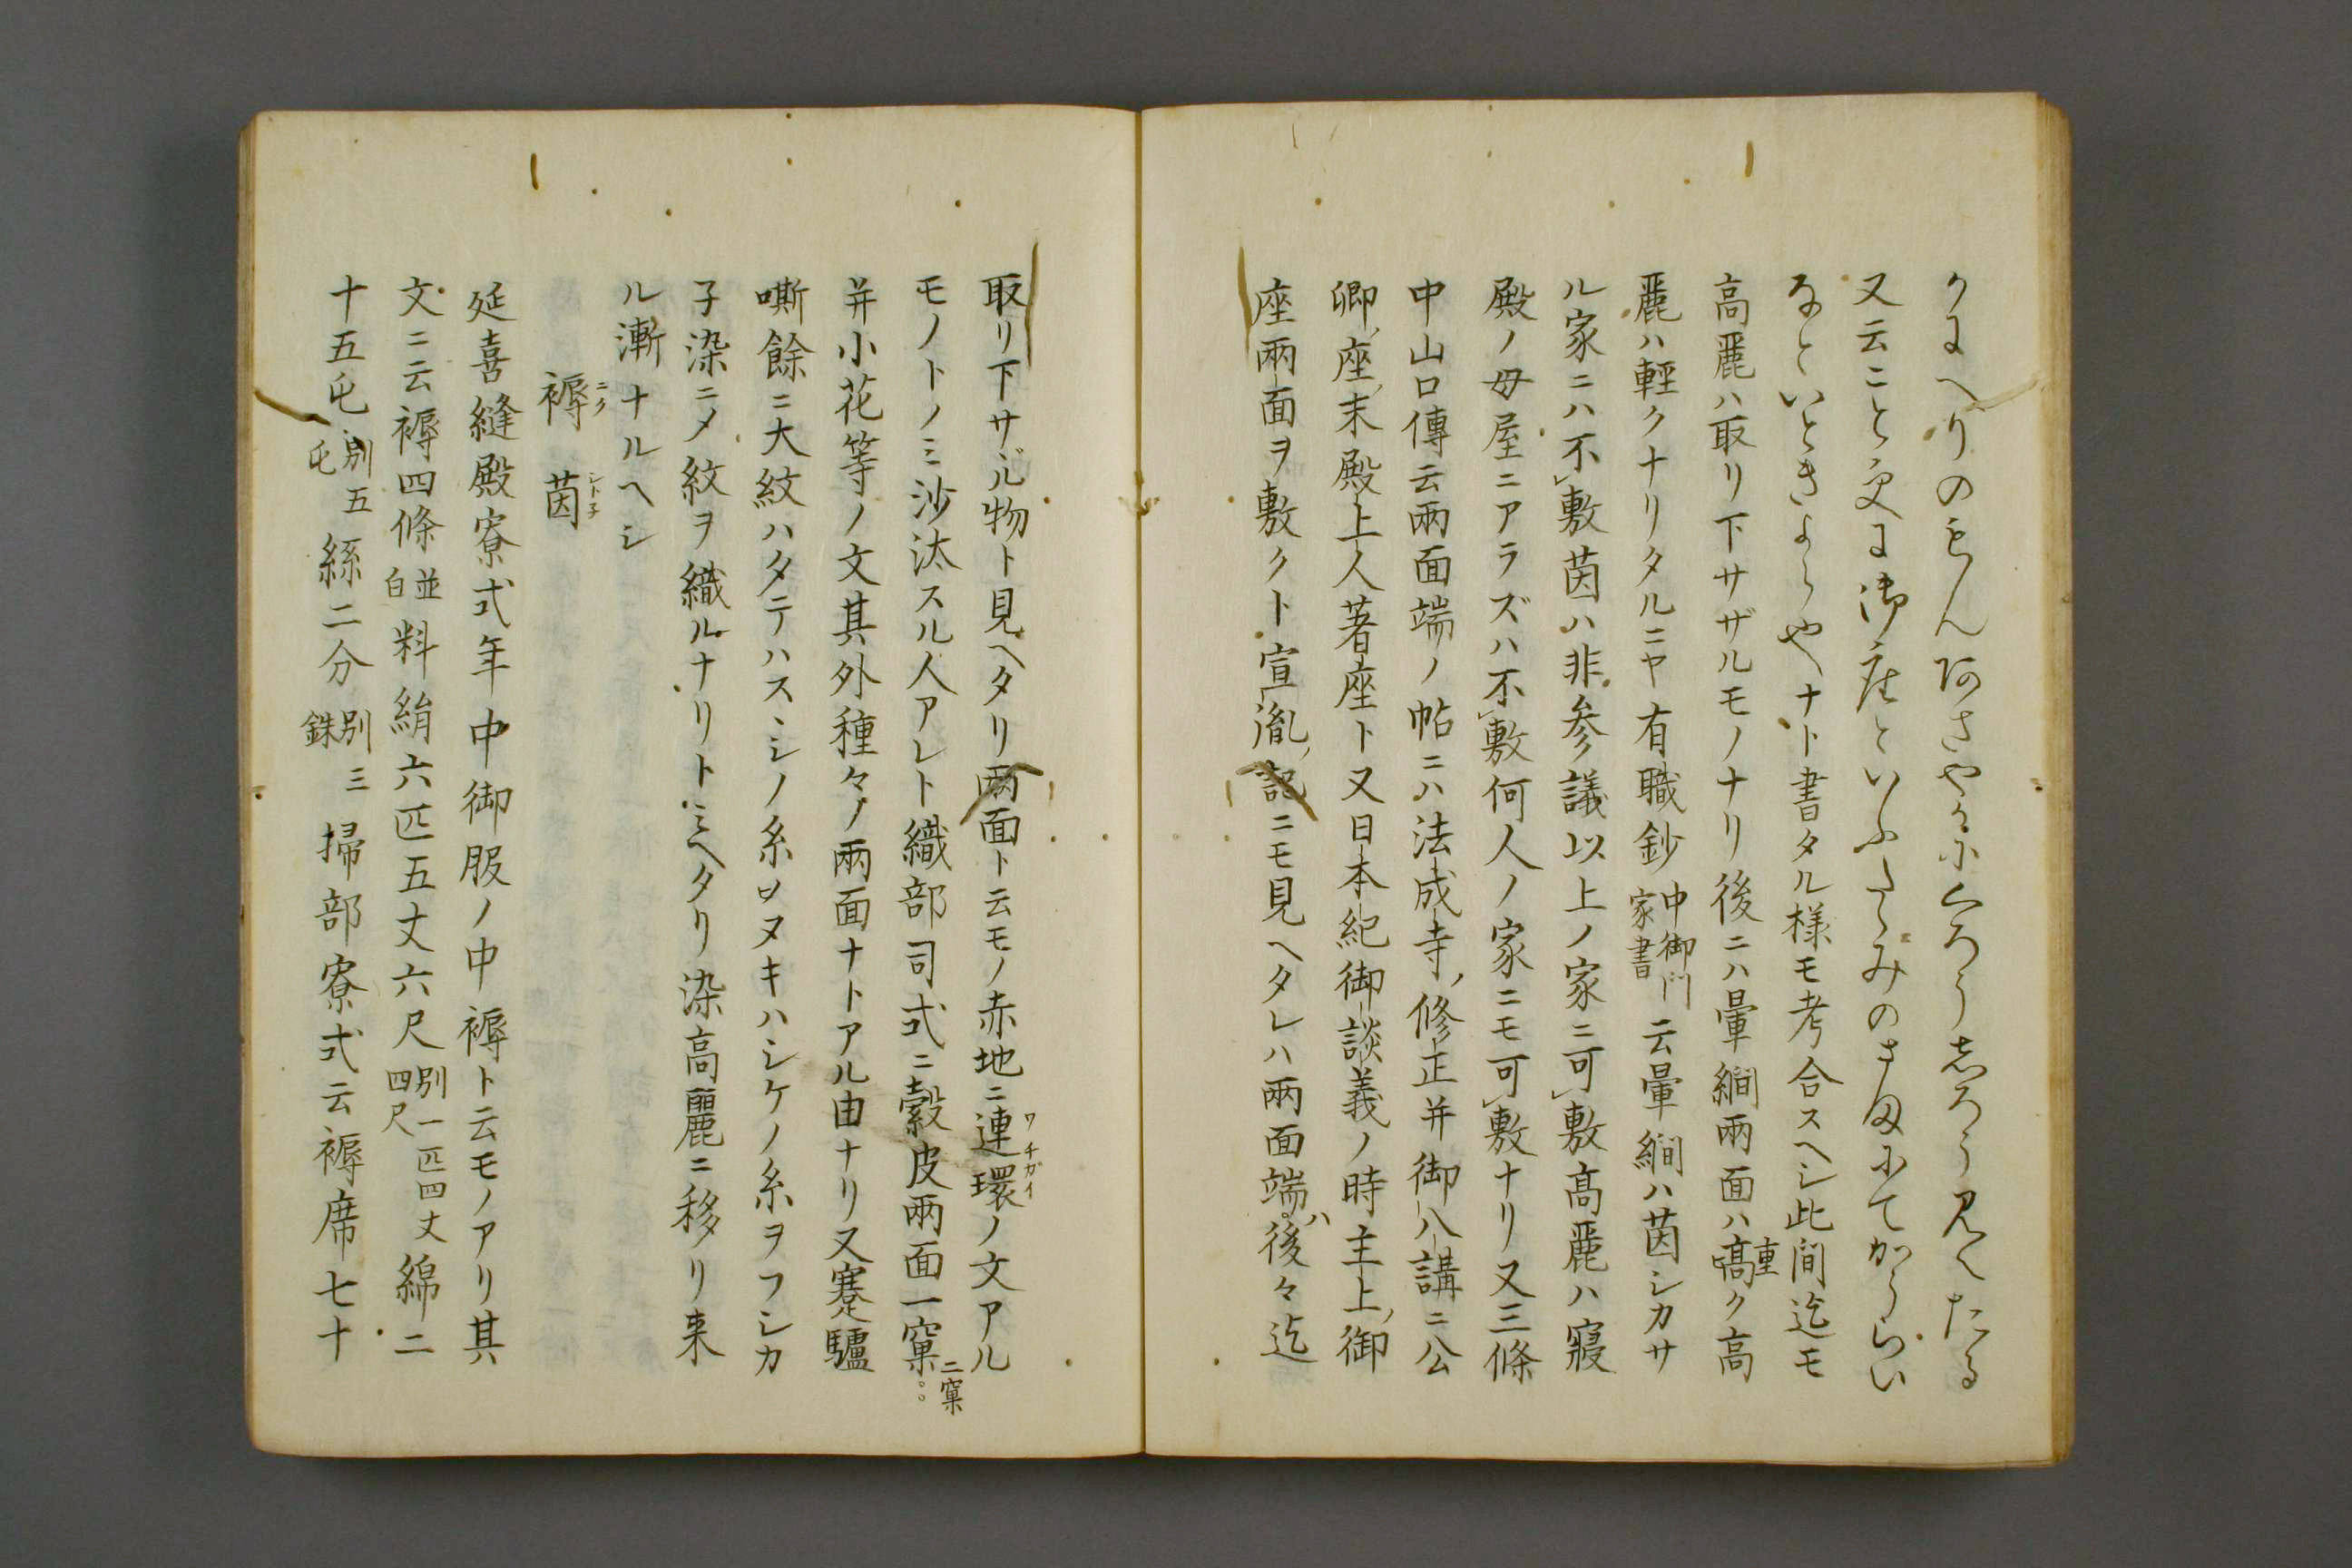 けまへりのもんあさやかにくろうしろう見へたる
又云こと更に御座といふたゝみのさまにてかうらい
なといときよらやナト書タル様モ考合スヘシ此間迄モ
高麗ハ取リ下サザルモノナリ後ニハ暈繝兩面ハ重高ク高
麗ハ輕クナリタルニヤ有職鈔中御門家書云暈繝ハ茵シカサ
ル家ニハ不敷茵ハ非参議以上ノ家ニ可敷高麗ハ寢
殿ノ母屋ニアラズハ不敷何人ノ家ニモ可敷ナリ又三條
中山口傳云兩面端ノ帖ニハ法成寺修正并御八講ニ公
卿座末殿上人著座ト又日本紀御談義ノ時主上御
座兩面ヲ敷クト宣胤記ニモ見ヘタレハ兩面端ハ後々迄
取リ下サヾル物ト見ヘタリ兩面ト云モノ赤地ニ連環ワチガイノ文アル
モノトノミ沙汰スル人アレト織部司式ニ縠皮兩面一窠二窠
并小花等ノ文其外種々ノ兩面ナトアル由ナリ又蹇驢
嘶餘ニ大紋ハタテハスヾシノ糸ヨヌキハシケノ糸ヲフシカ
子染ニメ紋ヲ織ルナリトミヘタリ染高麗ニ移リ来
ル漸ナルヘシ
褥ニク 茵シト子
延喜縫殿寮式年中御服ノ中褥ト云モノアリ其
文ニ云褥四條並白料絹六匹五丈六尺別一匹四丈四尺綿二
十五屯別五屯絲二分別三銖掃部寮式云褥席七十